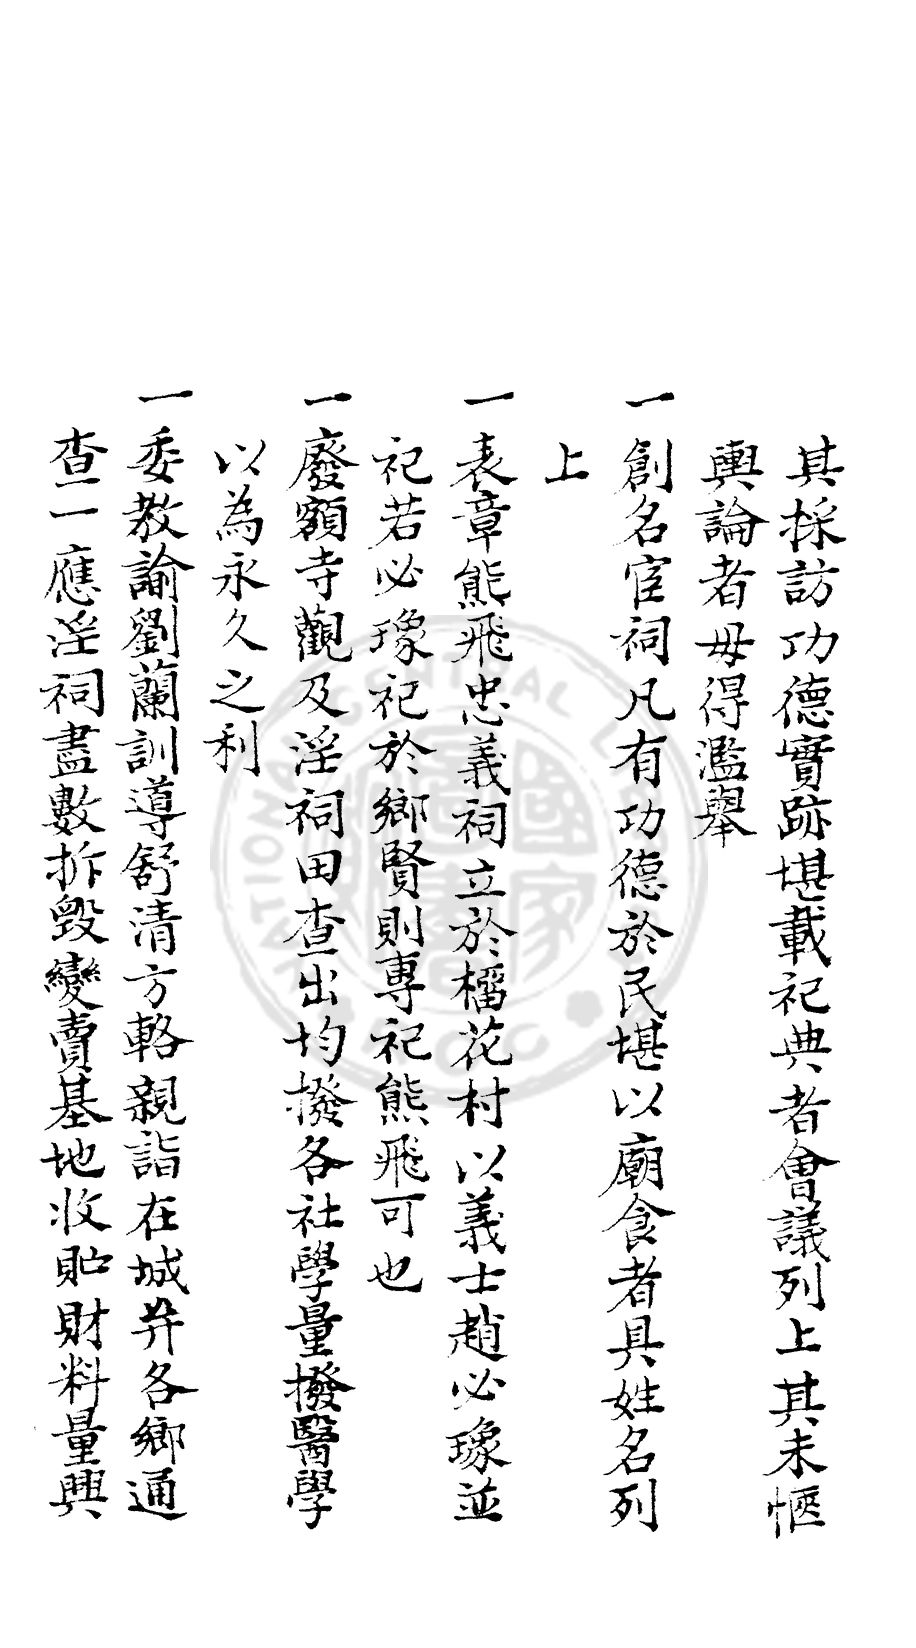 其採訪功德實跡堪載祀典者會議列上其未愜
輿論者毋得濫舉
一創名宦祠凡有功德於民堪以廟食者具姓名列
上
一表章熊飛忠義祠立於榴花村以義士趙必瑑並
祀若必瑑祀於鄉賢則專祀熊飛可也
一廢額寺觀及淫祠田查出均撥各社學量撥醫學
以為永久之利
一委教諭劉蘭訓導舒清方輅親詣在城并各鄉通
查一應淫祠盡數拆毀變賣基地收貯財料量興